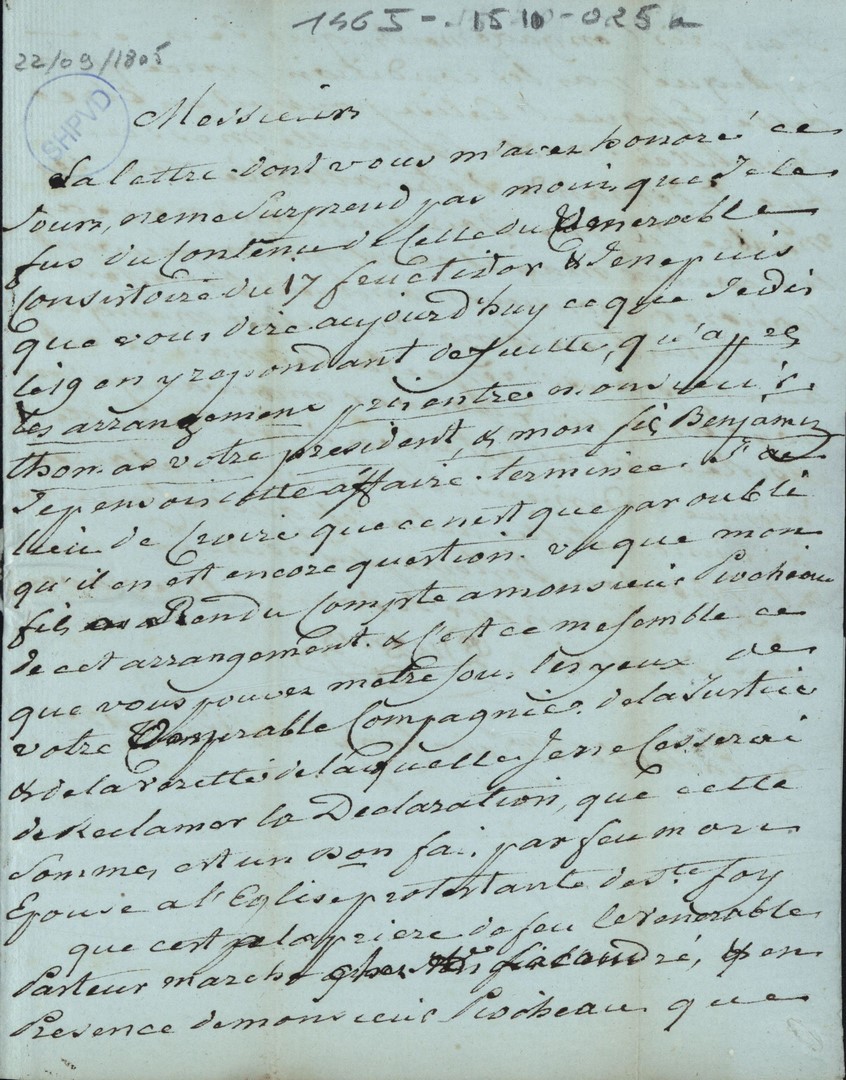 1463 - 1510 - 025 a
22/09/1805
SHPVD
Messieurs
La lettre dont vous m'avez honoré ce
Jour, ne me Surprend pas moins que Je le
fus du Contenu de Celle du Venerable
Consistoire du 17 feuctidor & Je ne puis
que vous dire aujourd'huy ce que Je dis
le 19 en y repondant de Suitte, qu'apres
les arrangement pris entre monsieur
thomas votre president, & mon fils Benjamin
Je pensois cette affaire terminée. J'ai
lieu de Croire que ce n'est que par oubli
qu'il en est encore question. vu que mon
fils a Rendu Compte a monsieur Pirobeau
de cet arrangement. & C'est ce me semble ce
que vous pouvez metre sous les yeux de
votre Venerable Compagnie. de la Justice
& de la Verette de laquelle Je ne Cesserai
de Reclamer la Declaration, que cette
Somme, est un Don fai par feu mon
Epouse a l'Eglise protestante de Ste. foy
que c'est a la priere de feu le Venerable
Pasteur marche André, & en
Presence de monsieur Pirobeau que